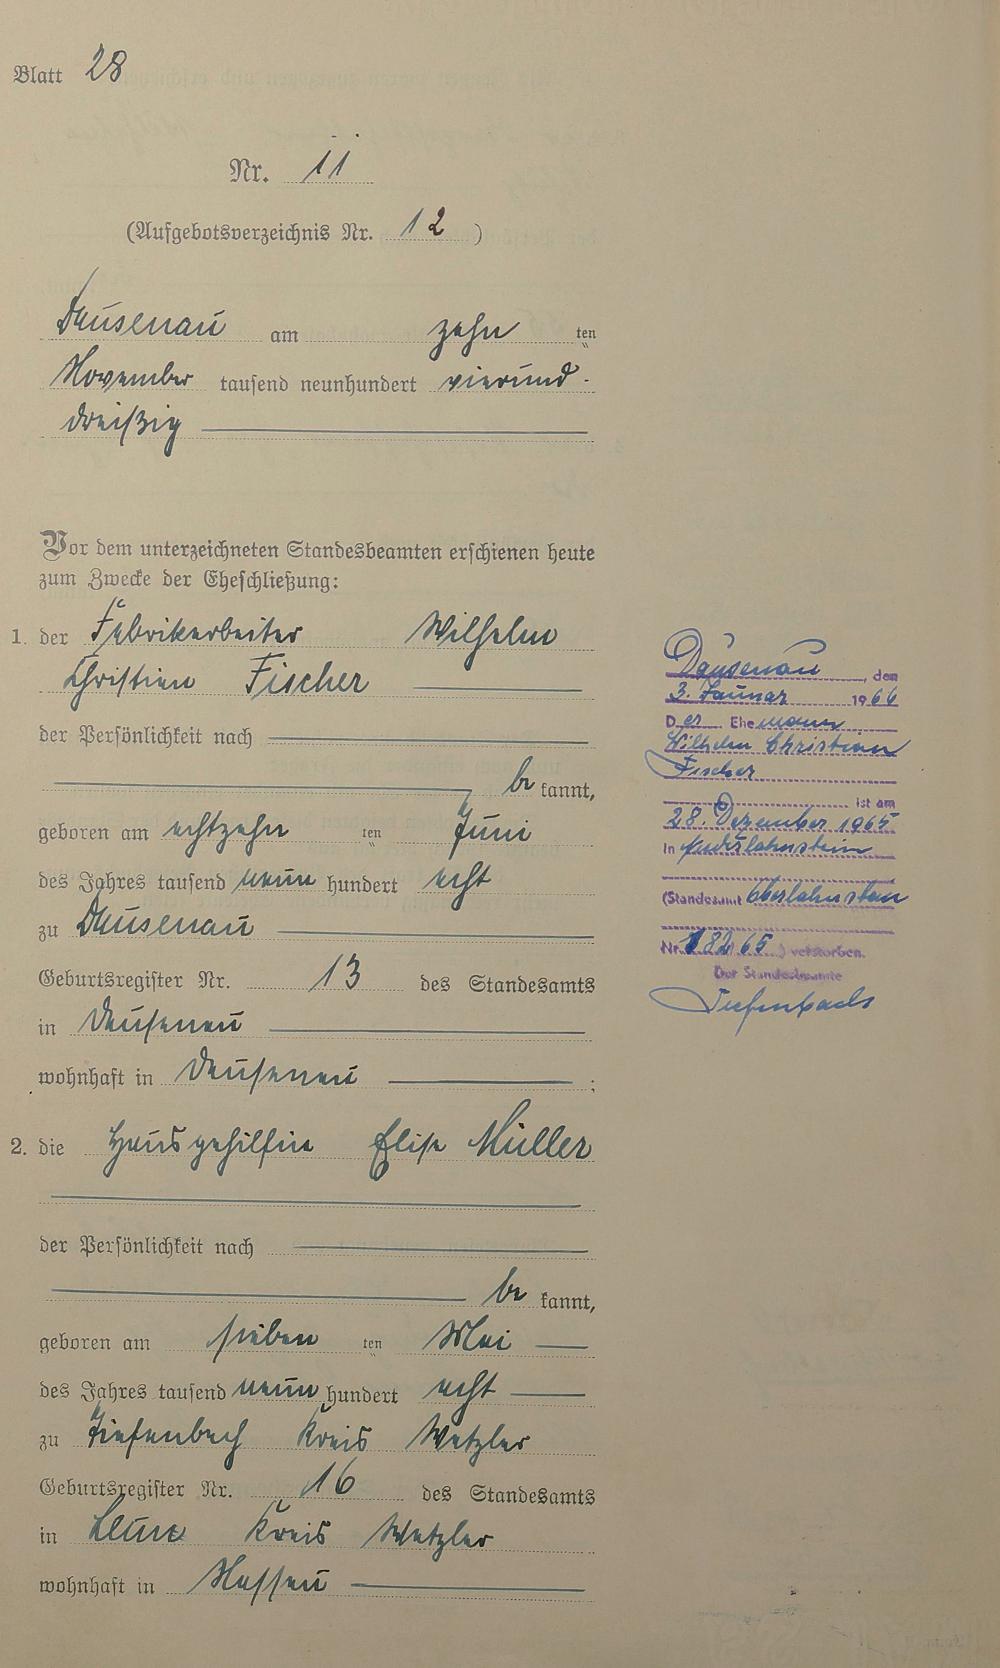 Blatt 28
Nr. 11
(Aufgebotsverzeichnis Nr. 12)
Dausenau am zehn ten
November tausend neunhundert vierund-
dreißig
Vor dem unterzeichneten Standesbeamten erschienen heute
zum Zwecke der Eheschließung:
1. der Fabrikarbeiter Wilhelm
Christian Fischer
der Persönlichkeit nach
be kannt,
geboren am achtzehn ten Juni
des Jahres tausend neun hundert acht
zu Dausenau
Geburtsregister Nr. 13 des Standesamts
in Dausenau
wohnhaft in Dausenau ;
2. die Hausgehilfin Elise Müller
der Persönlichkeit nach
be kannt,
geboren am sieben ten Mai
des Jahres tausend neun hundert acht
zu Tiefenbach Kreis Wetzlar
Geburtsregister Nr. 16 des Standesamts
in Leun Kreis Wetzlar
wohnhaft in Nassau
Dausenau, den
3. Januar 1966
Der Ehemann
Wilhelm Christian
Fischer
ist am
28. Dezember 1965
in Niederlahnstein
(Standesamt Oberlahnstein
Nr. 182/65) verstorben.
Der Standesbeamte